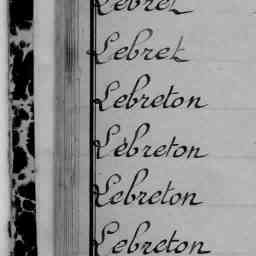 Lebret
Lebret
Lebreton
Lebreton
Lebreton
Lebreton